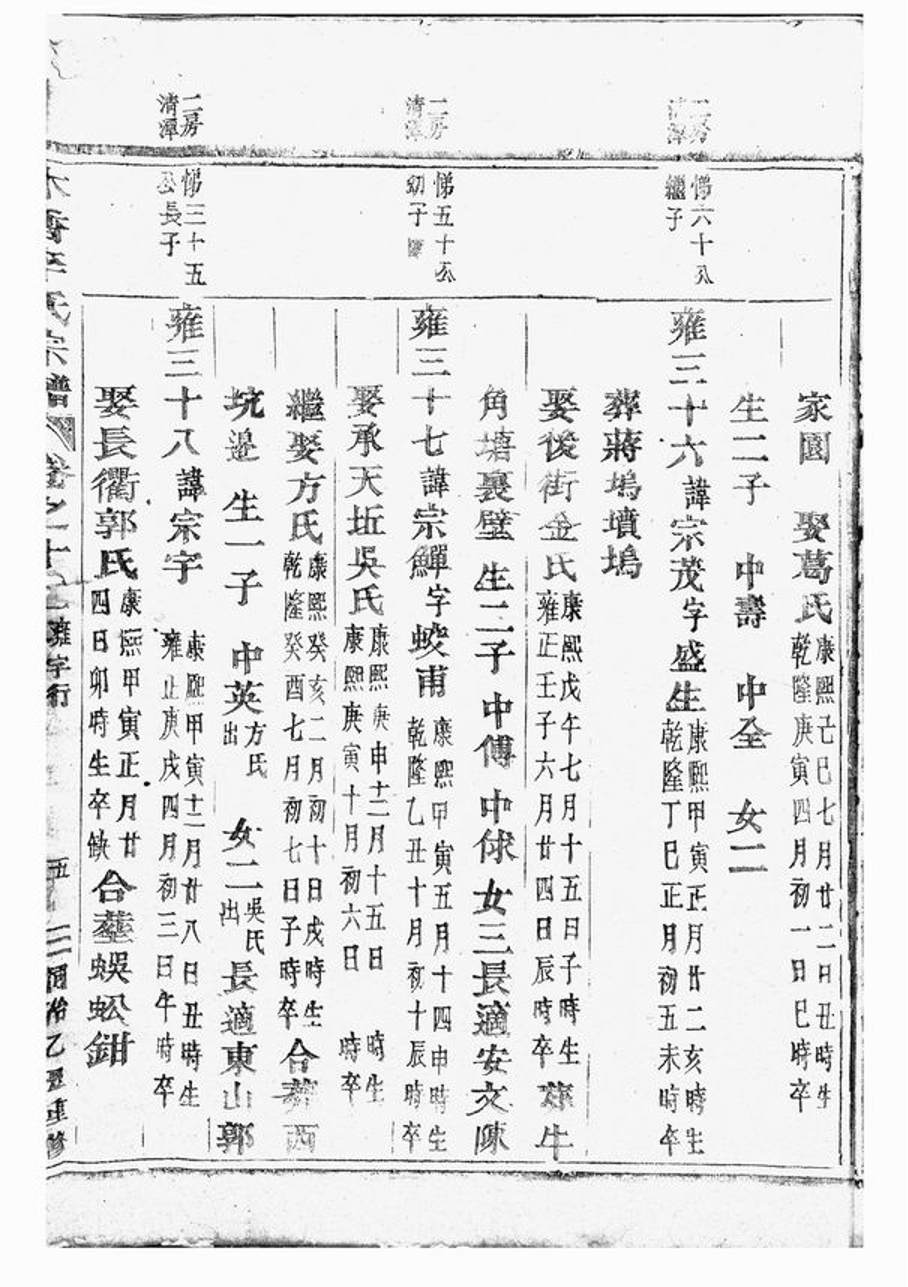 家園　娶葛氏康熙己巳七月廿二日丑時生乾隆庚寅四月初一日巳時卒
生二子　中壽　中全　女二
二房清潭
悌六十八繼子
雍三十六諱宗茂字盛生康熙甲寅正月廿二亥時生乾隆丁巳正月初五未時卒
葬蔣塢墳塢
娶後街金氏康熙戊午七月十五日子時生雍正壬子六月廿四日辰時卒葬牛
角塘裏壁　生二子　中傅　中俅　女三長適安文陳
二房清潭
悌五十公幼子
雍三十七諱宗鱓字蛟甫康熙甲寅五月十四申時生乾隆乙丑十月初十辰時卒
娶承天坵吳氏康熙庚申十二月十五日　時生康熙庚寅十月初六日　時卒
繼娶方氏康熙癸亥二月初十日戌時生乾隆癸酉七月初七日子時卒合葬西
坑邉　生一子　中英方氏出　女二吳氏出長適東山郭
二房清潭
悌三十五公長子
雍三十八諱宗宇康熙甲寅十二月廿八日丑時生雍正庚戌四月初三日午時卒
娶長衢郭氏康熙甲寅正月廿四日卯時生卒缺合塟蜈蚣鉗
氏宗譜　卷之一十　雍字行　五　同治乙丑重修